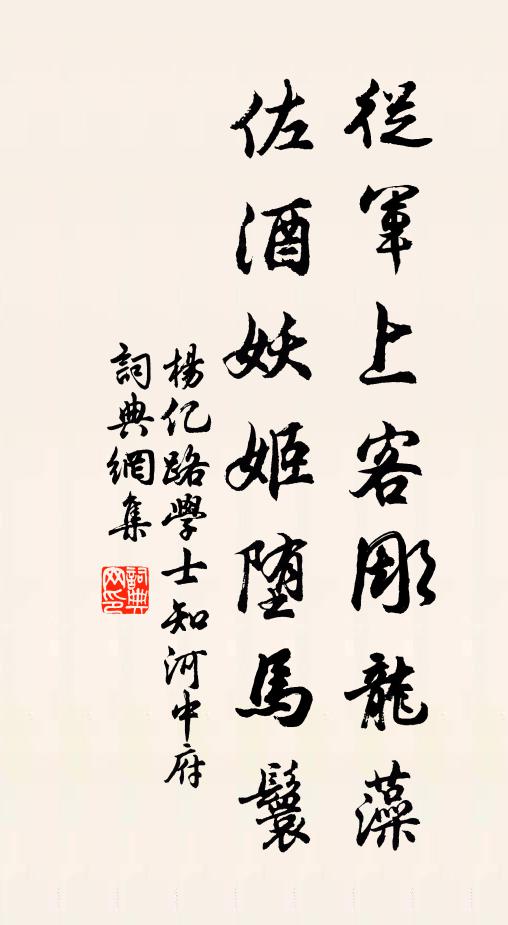 從軍上客彫龍藻
佐酒妖姬墮馬鬟
楊億路學士知河中府
詞典網集
詞典網印